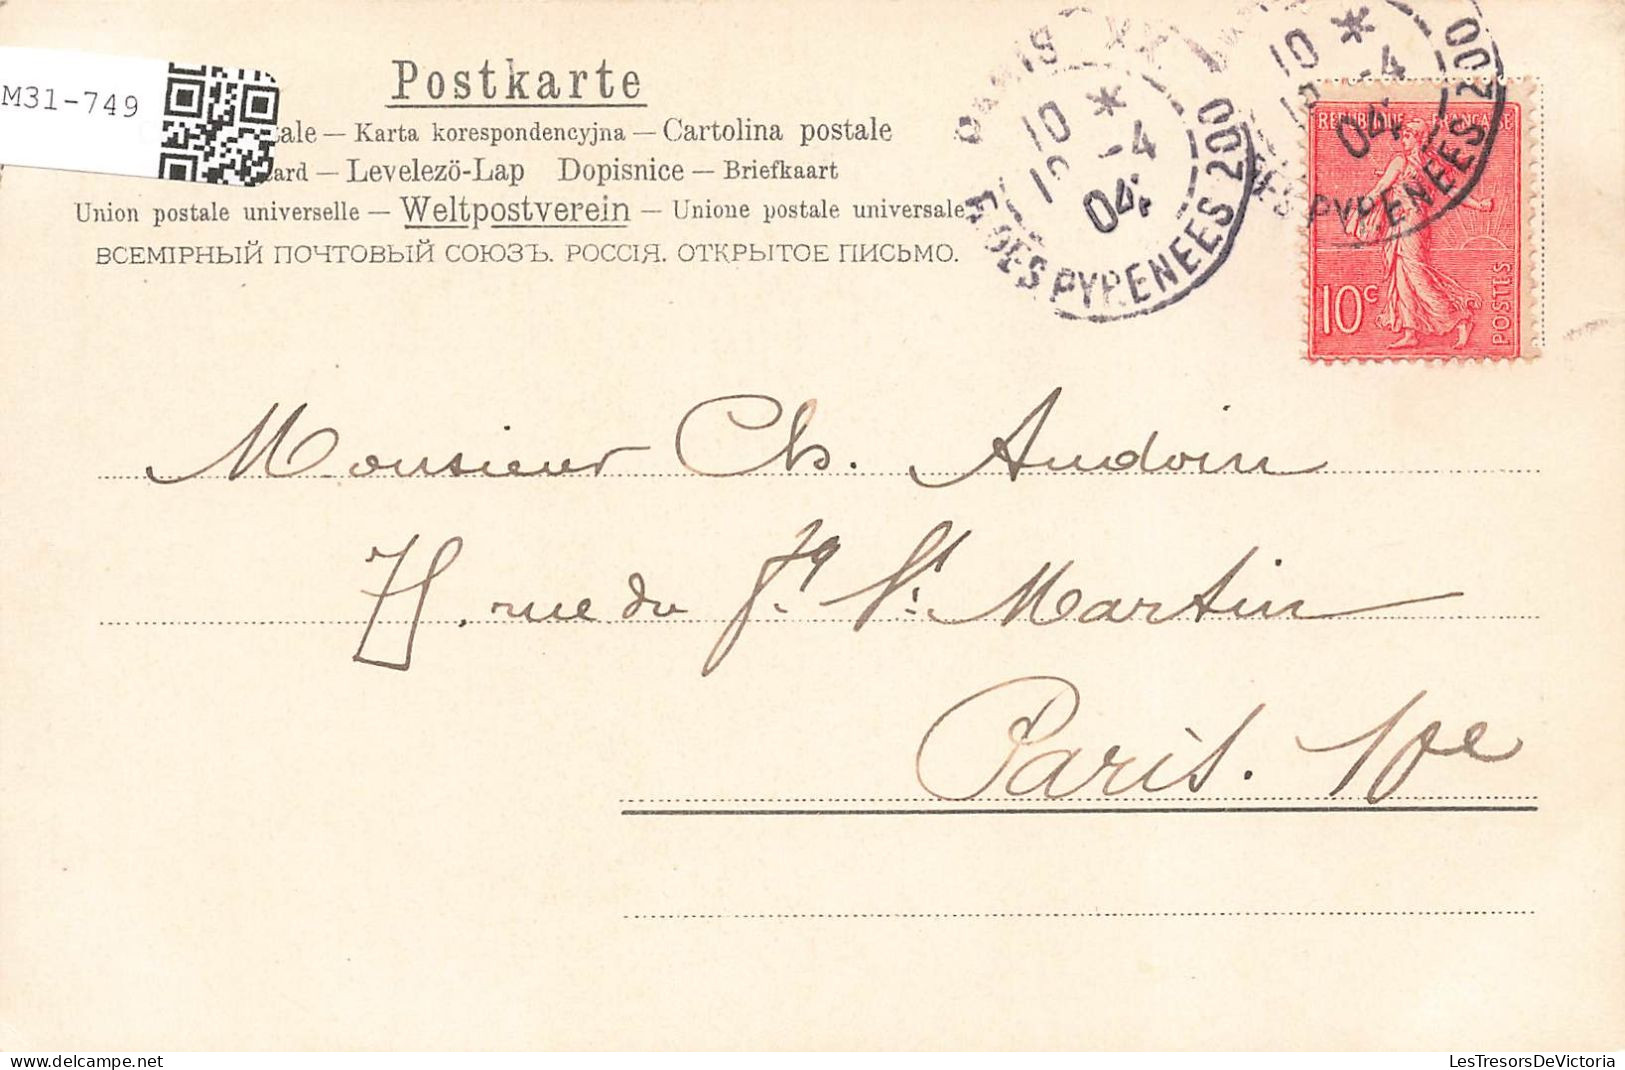 Postkarte
M31-749
ale — Karta korespondencyjna — Cartolina postale
ard — Levelezö-Lap Dopisnice — Briefkaart
Union postale universelle — Weltpostverein — Unione postale universale
ВСЕМІРНЫЙ ПОЧТОВЫЙ СОЮЗЪ. РОССІЯ. ОТКРЫТОЕ ПИСЬМО.
PARIS XX
10 * -4 04
R. DES PYRENEES 200
10 * -4 04
PYRENEES 200
REPUBLIQUE FRANÇAISE
10c
POSTES
Monsieur Ch. Audoin
75, rue du Fg St Martin
Paris. Xe
LesTresorsDeVictoria